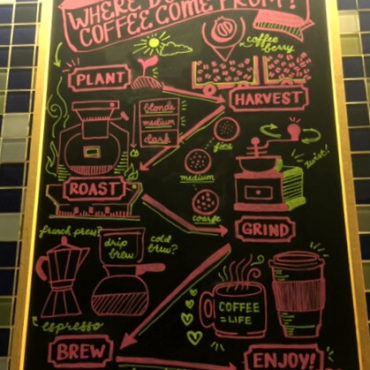 WHERE D
COFFEE COME FROM?
coffee
berry
PLANT
HARVEST
blonde
medium
dark
fine
medium
coarse
twist!
ROAST
GRIND
french press?
drip
brew
cold
brew?
espresso
COFFEE
= LIFE
BREW
ENJOY!